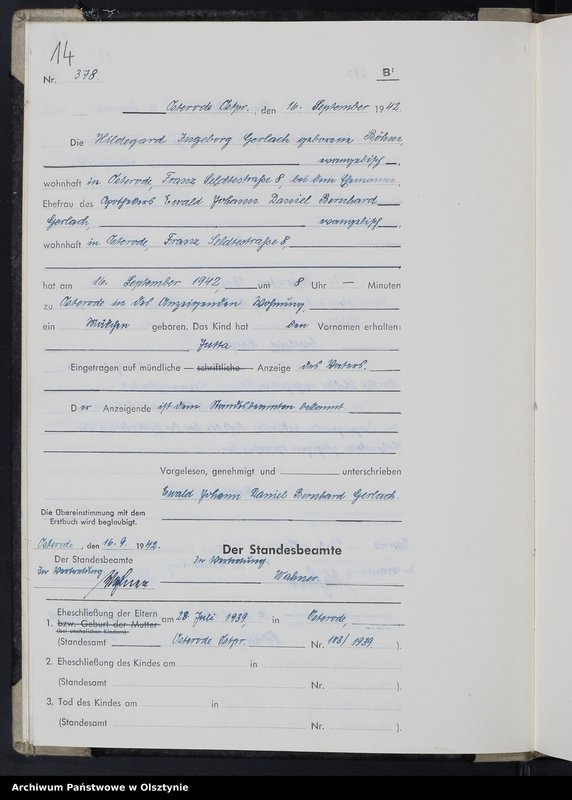 14
Nr. 378.
B¹
Osterode Ostpr., den 16. September 1942.
Die Hildegard Ingeborg Gerlach geborene Böhm,
evangelisch,
wohnhaft in Osterode, Franz Seldtestraße 8, bei dem Ehemanne,
Ehefrau des Apothekers Ewald Johann Daniel Bernhard
Gerlach, evangelisch,
wohnhaft in Osterode, Franz Seldtestraße 8,
hat am 16. September 1942, um 8 Uhr — Minuten
zu Osterode in des Anzeigenden Wohnung,
ein Mädchen geboren. Das Kind hat den Vornamen erhalten:
Jutta
Eingetragen auf mündliche — schriftliche — Anzeige des Vaters.
Der Anzeigende ist dem Standesbeamten bekannt.
Vorgelesen, genehmigt und unterschrieben
Ewald Johann Daniel Bernhard Gerlach.
Die Übereinstimmung mit dem
Erstbuch wird beglaubigt.
Osterode, den 16.9.1942.
Der Standesbeamte
Der Standesbeamte
In Vertretung.
In Vertretung
Wahner.
1. Eheschließung der Eltern
bzw. Geburt der Mutter
(bei unehelichen Kindern)
am 28. Juli 1939, in Osterode,
(Standesamt Osterode Ostpr. Nr. 103/1939 ).
2. Eheschließung des Kindes am in
(Standesamt Nr. ).
3. Tod des Kindes am in
(Standesamt Nr. ).
Archiwum Państwowe w Olsztynie